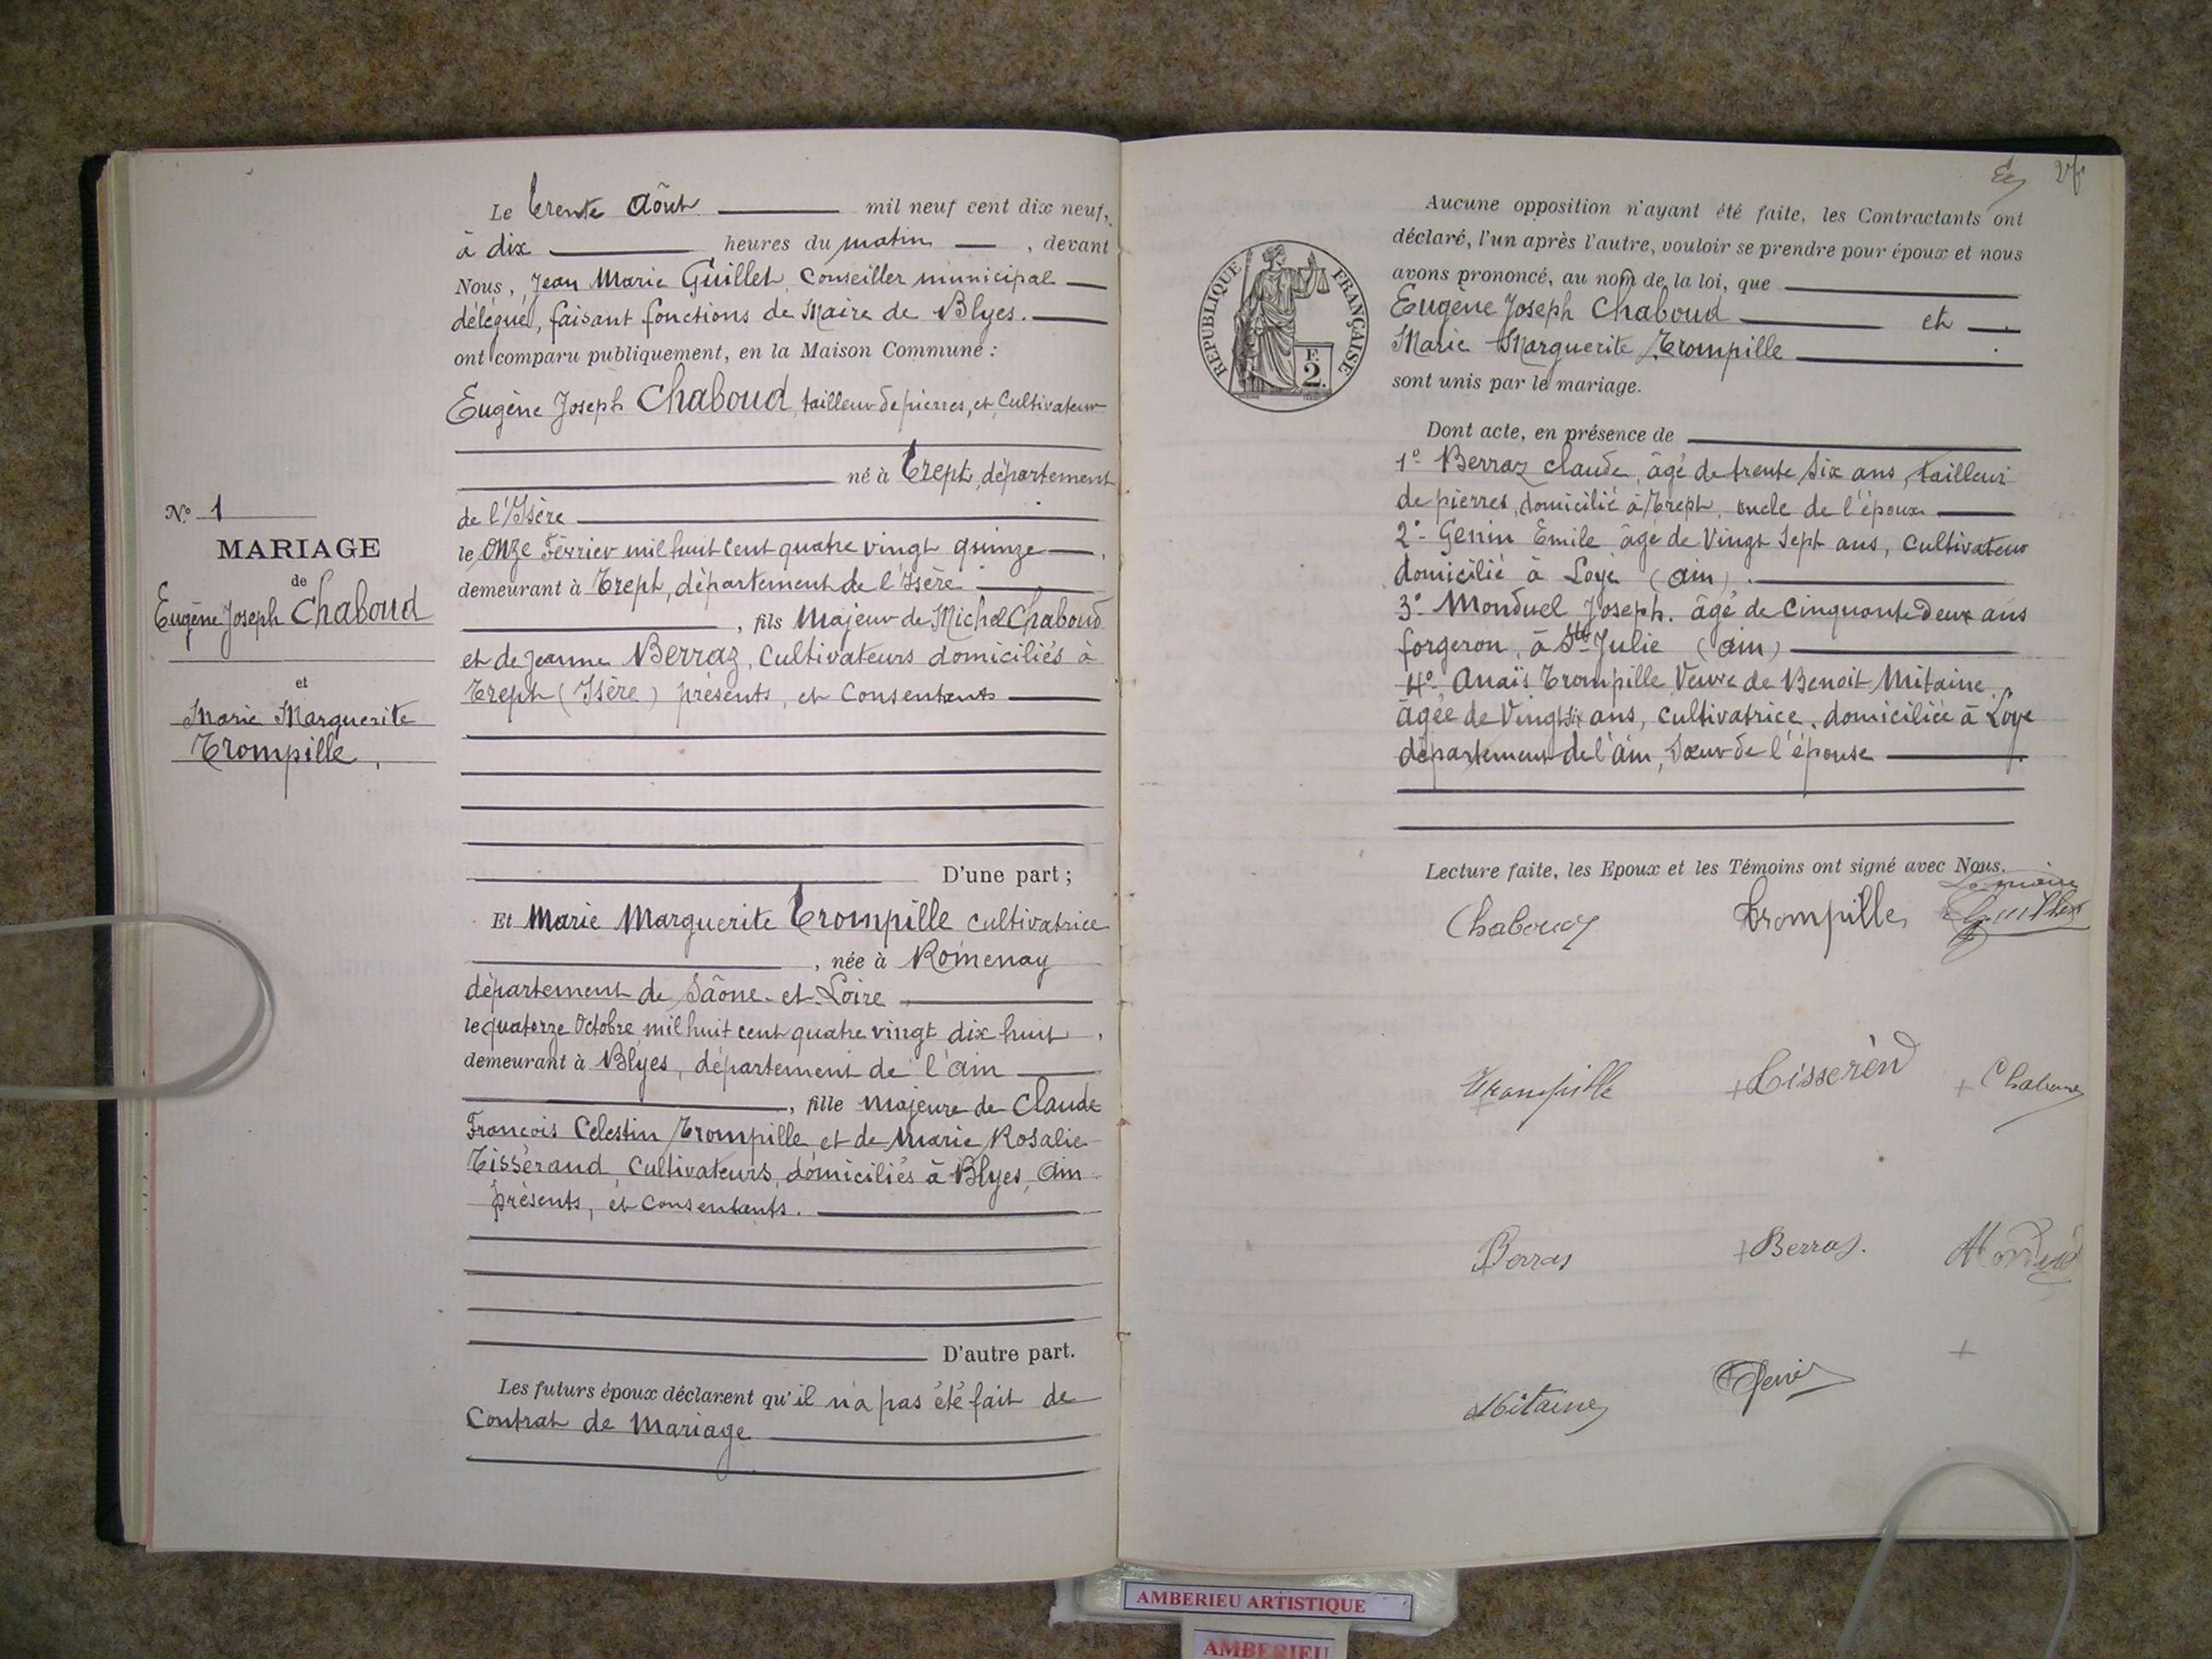 N.° 1
MARIAGE
de
Eugène Joseph Chaboud
et
Marie Marguerite
Trompille.
Le trente Août mil neuf cent dix neuf,
à dix heures du matin, devant
Nous, Jean Marie Guillet, Conseiller municipal
délégué, faisant fonctions de Maire de Blyes.
ont comparu publiquement, en la Maison Commune :
Eugène Joseph Chaboud, tailleur de pierres, et Cultivateur
né à Trept, département
de l'Isère
le Onze Février mil huit cent quatre vingt quinze,
demeurant à Trept, département de l'Isère
, fils Majeur de Michel Chaboud
et de Jeanne Berraz, Cultivateurs domiciliés à
Trept (Isère) présents, et Consentants
D'une part ;
Et Marie Marguerite Trompille cultivatrice
, née à Romenay
département de Saône-et-Loire
le quatorze Octobre mil huit cent quatre vingt dix huit,
demeurant à Blyes, département de l'ain
, fille majeure de Claude
François Celestin Trompille et de Marie Rosalie
Tisserand, Cultivateurs, domiciliés à Blyes, ain
présents, et consentants.
D'autre part.
Les futurs époux déclarent qu'il n'a pas été fait de
Contrat de Mariage
Aucune opposition n'ayant été faite, les Contractants ont
déclaré, l'un après l'autre, vouloir se prendre pour époux et nous
avons prononcé, au nom de la loi, que
Eugène Joseph Chaboud et
Marie Marguerite Trompille
sont unis par le mariage.
RÉPUBLIQUE FRANÇAISE
F.
2.
Dont acte, en présence de
1° Berraz Claude, âgé de trente six ans, tailleur
de pierres, domicilié à Trept, oncle de l'époux
2° Genin Emile âgé de Vingt Sept ans, Cultivateur
domicilié à Loye (ain).
3° Monduel Joseph. âgé de Cinquante Deux ans
forgeron, à Ste Julie (ain)
4° Anaïs Trompille Veuve de Benoit Mitaine.
âgée de Vingt six ans, cultivatrice, domiciliée à Loye
département de l'ain, Sœur de l'épouse
Lecture faite, les Epoux et les Témoins ont signé avec Nous.
Le maire
Chaboud Trompille Guillet
Trompille Tisserend
Berras Berras. Monduel
Mitaine Genin
AMBERIEU ARTISTIQUE
AMBERIEU